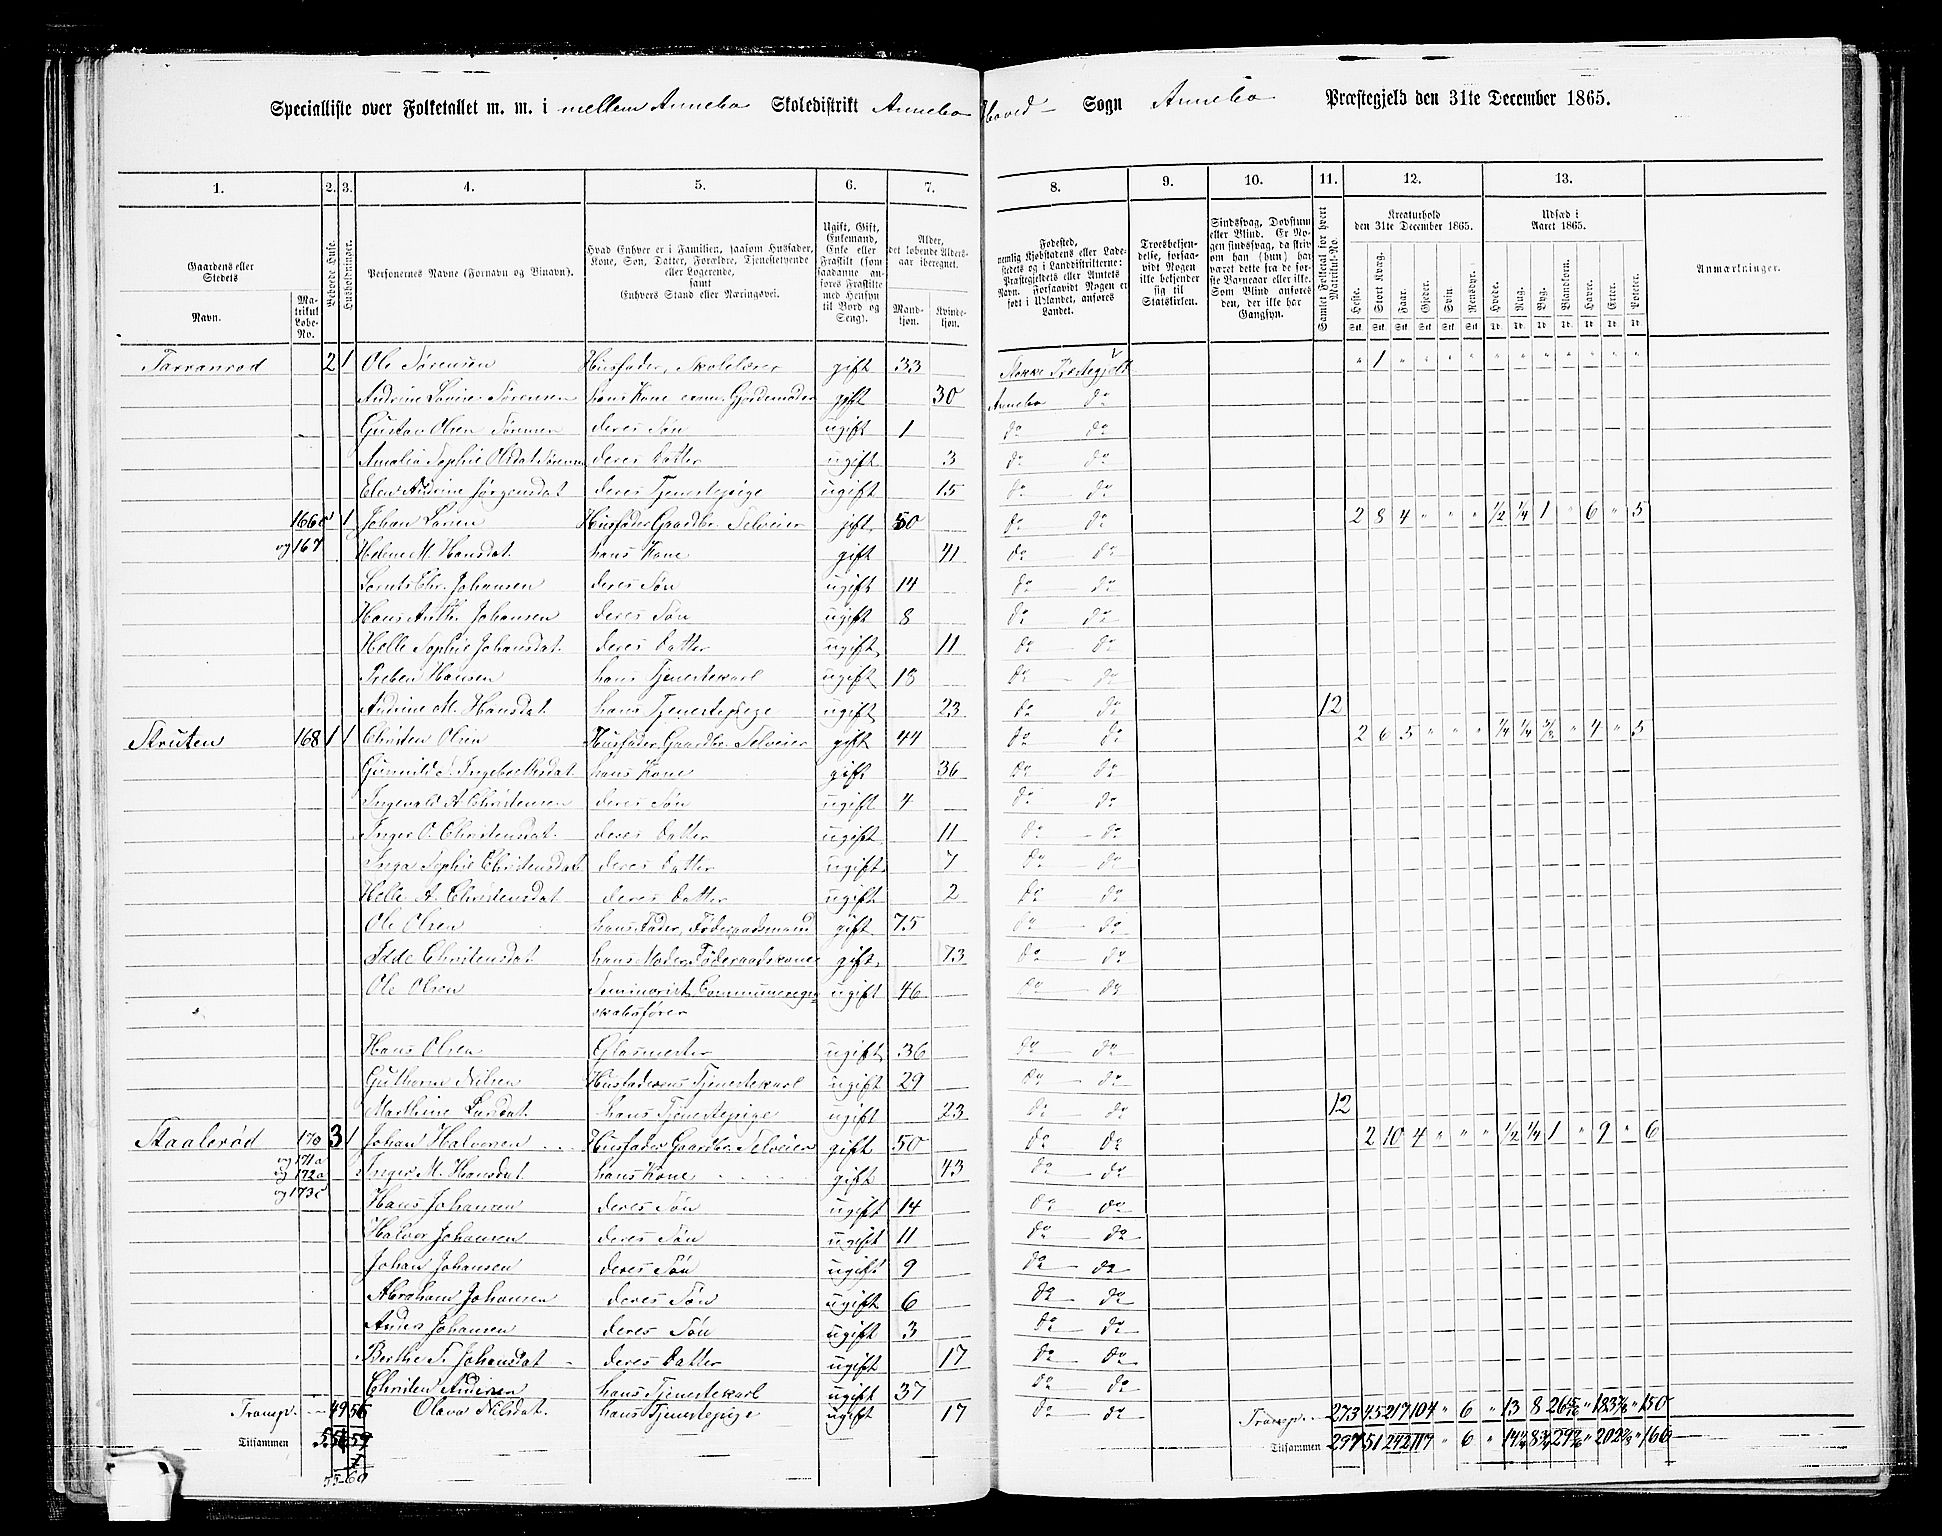 Specialliste over Folketallet m. m. i mellem Annebo Skoledistrikt Annebo Hoved Sogn Annebo Præstegjeld den 31te December 1865.
1. 2. 3. 4. 5. 6. 7. 8. 9. 10. 11. 12. 13.
Gaardens eller Stedets Navn.
Matrikul Løbe-No.
Beboede Huse.
Husholdninger.
Personernes Navne (Fornavn og Tilnavn).
Hvad Enhver er i Familien, saasom Husfader, Kone, Søn, Datter, Forældre, Tjenestetyende eller Logerende, samt Enhvers Stand eller Næringsvei.
Ugift, Gift, Enkemand, Enke eller Fraskilt (som saadanne anføres Fraskilte med Hensyn til Bord og Seng).
Alder, det løbende Aldersaar iberegnet.
Mandkjøn. Kvindekjøn.
Fødested, nemlig Kjøbstadens eller Ladestedets og i Landdistrikterne: Præstegjeldets eller Amtets Navn. Forsaavidt Nogen er født i Udlandet, anføres Landet.
Troesbekjendelse, forsaavidt Nogen ikke bekjender sig til Statskirken.
Sindssvag, Døvstum eller Blind. Er Nogen sindssvag, da skrives om han (hun) har været dette fra de første Barneaar eller ikke. Som Blind anføres den, der ikke har Gangsyn.
Samlet Folketal for hvert Matrikul-No.
Kreaturhold den 31te December 1865.
Heste. Stort Kvæg. Faar. Gjeder. Svin. Rensdyr.
Udsæd i Aaret 1865.
Hvede. Rug. Byg. Blandkorn. Havre. Erter. Poteter.
Anmærkninger.
Tarranrød 2 1 Ole Sørensen Husfader, Skolelærer gift 33 Stokke Præstegjeldt " 1 " " " " " " " " " " "
Andrine Lovise Sørensen hans Kone exam. Gjordemoder gift 30 Annebo do
Gustav Olsen Sørensen deres Søn ugift 1 do do
Amalia Sophie Olsdat Sørensen deres Datter ugift 3 do do
Elen Andrine Jørgensdat deres Tjenestepige ugift 15 do do
166c 1 Johan Larsen Husfader Gaardbr. Selveier gift 50 do do 2 8 4 " " " 1/2 1/4 1 " 6 " 5
og 167 Helene M. Hansdat. hans Kone gift 41 do do
Lornts Chr. Johansen deres Søn ugift 14 do do
Hans Anth. Johansen deres Søn ugift 8 do do
Helle Sophie Johansdat. deres Datter ugift 11 do do
Preben Hansen hans Tjenestekarl ugift 13 do do
Andrine M. Hansdat. hans Tjenestepige ugift 23 do do 12
Struten 168 1 1 Christen Olsen Husfader Gaardbr. Selveier gift 44 do do 2 6 5 " " " 1/4 1/4 3/4 " 4 " 5
Gunnild S. Ingebrethsdat. hans Kone gift 36 do do
Ingevald A. Christensen deres Søn ugift 4 do do
Inger O. Christensdat. deres Datter ugift 11 do do
Inga Sophie Christensdat deres Datter ugift 7 do do
Helle A. Christensdat deres Datter ugift 2 do do
Ole Olsen hans Fader, Føderaadsmand gift 75 do do
Idde Christensdat hans Moder Føderaadskone gift 73 do do
Ole Olsen Seminarist, Communeregnskabsfører ugift 46 do do
Hans Olsen Glasmester ugift 36 do do
Guthorm Nilsen Husfaderens Tjenestekarl ugift 29 do do
Marthine Larsdat. hans Tjenestepige ugift 23 do do 12
Staalerød 170 3 1 Johan Halvorsen Husfader Gaardbr. Selveier gift 50 do do 2 10 4 " " " 1/2 1/4 1 " 9 " 6
og 171a
og 172a Inger M. Hansdat hans Kone gift 43 do do
og 173c Hans Johansen deres Søn ugift 14 do do
Halvor Johansen deres Søn ugift 11 do do
Johan Johansen deres Søn ugift 9 do do
Abraham Johansen deres Søn ugift 6 do do
Anders Johansen deres Søn ugift 3 do do
Berthe S. Johansdat deres Datter ugift 17 do do
Christen Andersen hans Tjenestekarl ugift 37 do do
Transp. 49 56 Olava Nilsdat. hans Tjenestepige ugift 17 do do Transp. 273 45 217 104 " 6 " 13 8 " 150
Tilsammen 59 Tilsammen 297 51 242 117 " 6 " " 166
60